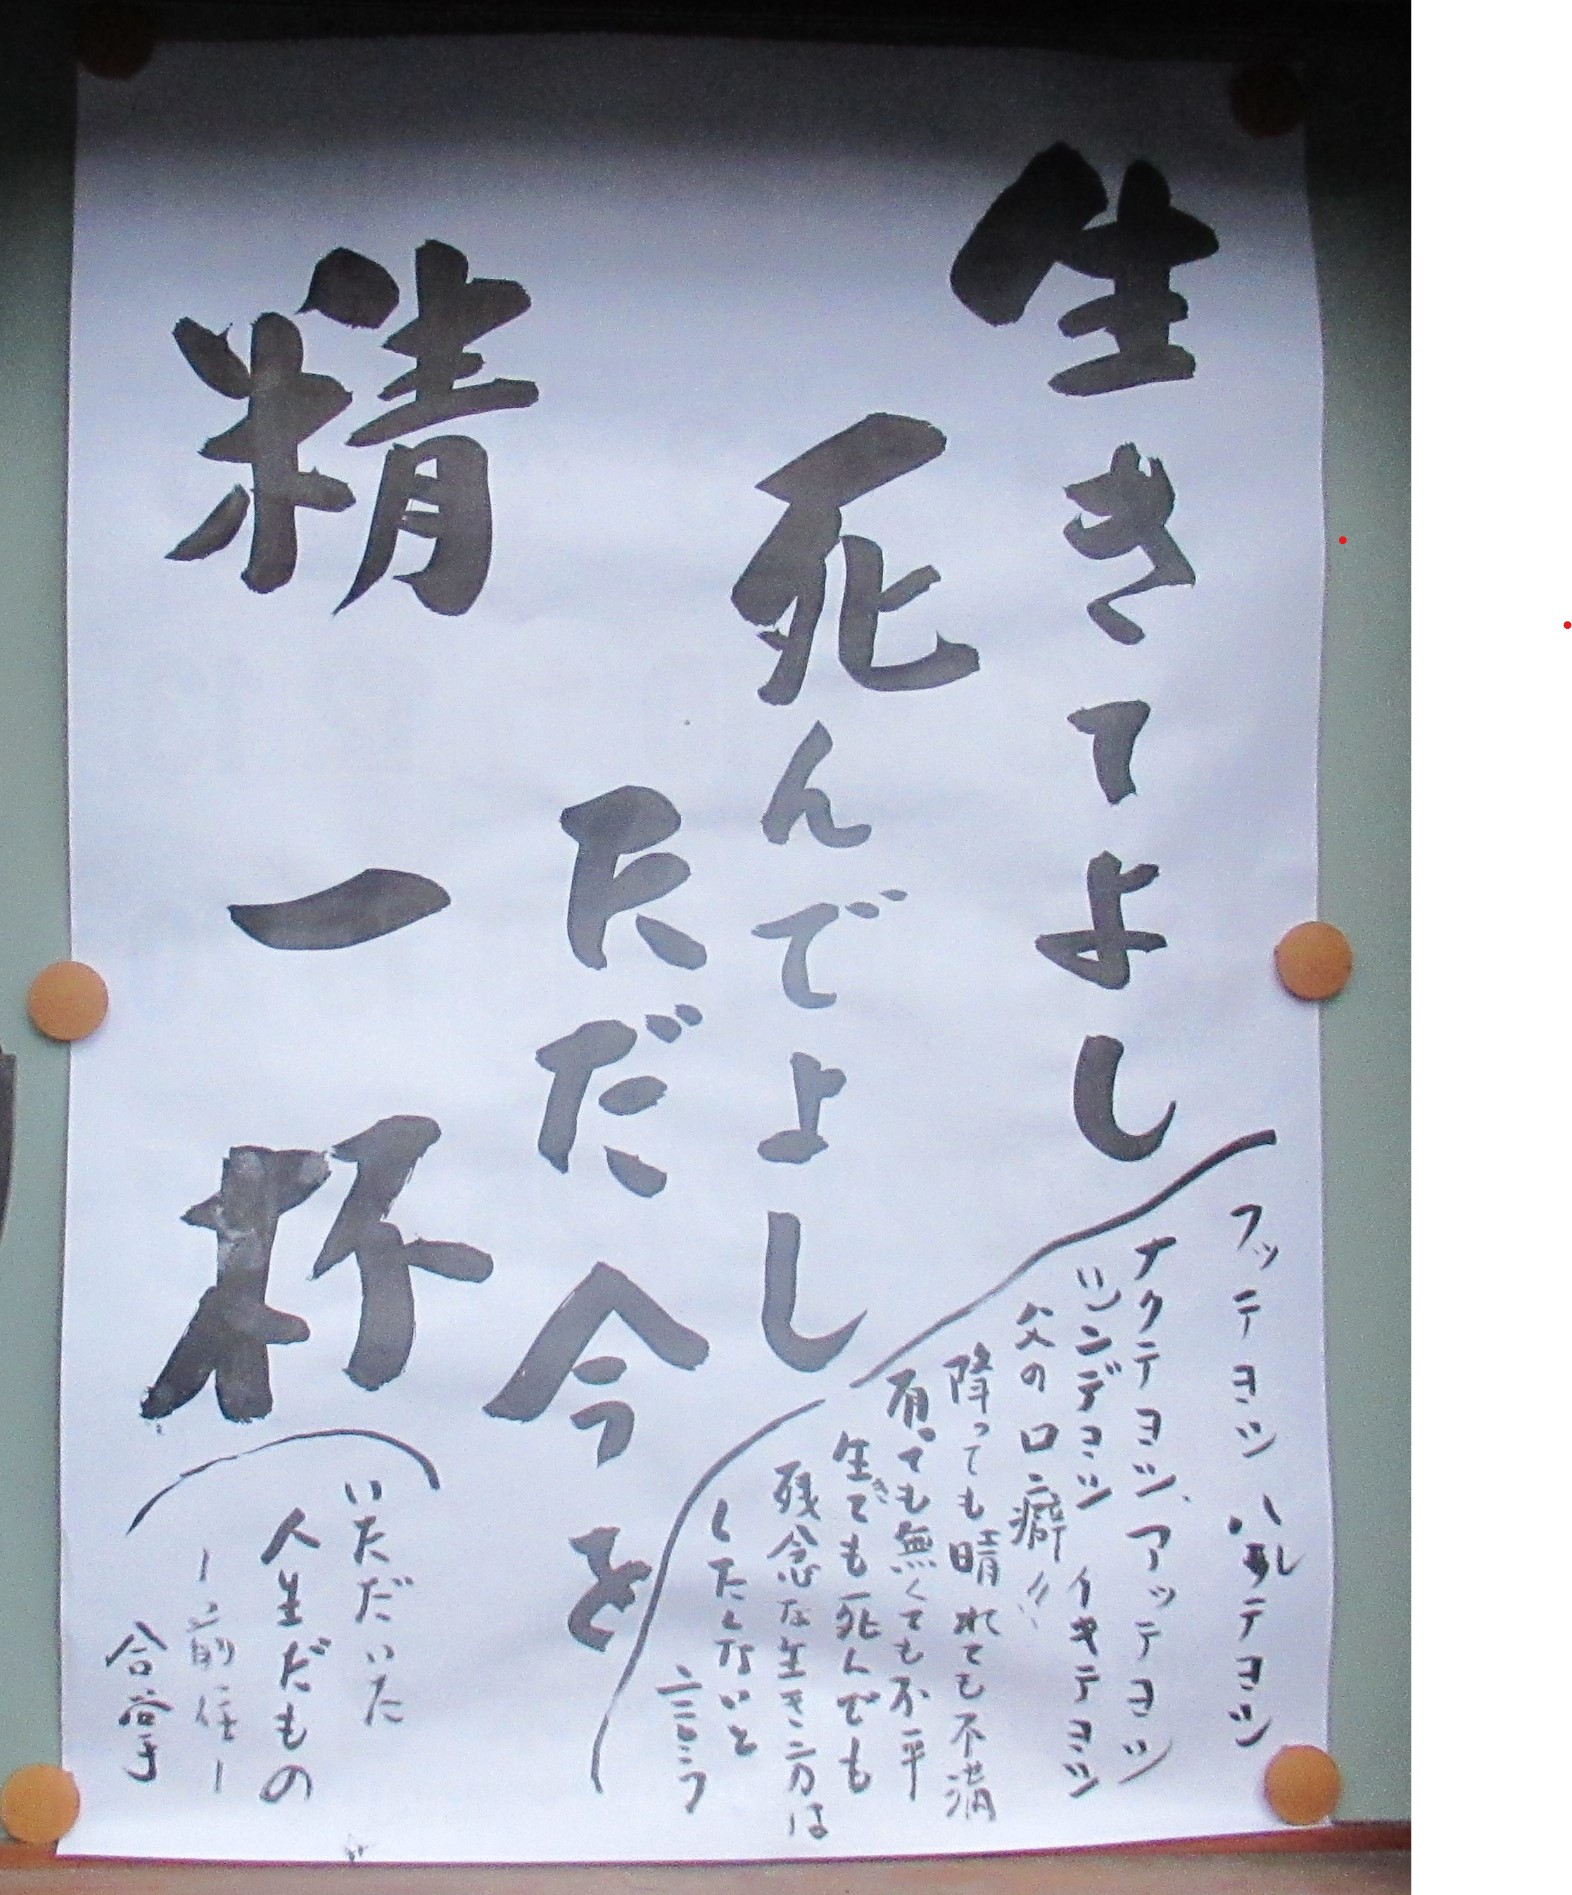 生きてよし
死んでよし
ただ今を
精一杯
フッテヨシ ハレテヨシ
ナクテヨシ、アッテヨシ
シンデヨシ イキテヨシ
父の口癖!!
降っても晴れても不満
有っても無くても不平
生きても死んでも
残念な生き方は
したくないと
言う
いただいた
人生だもの
ー前住ー
合掌